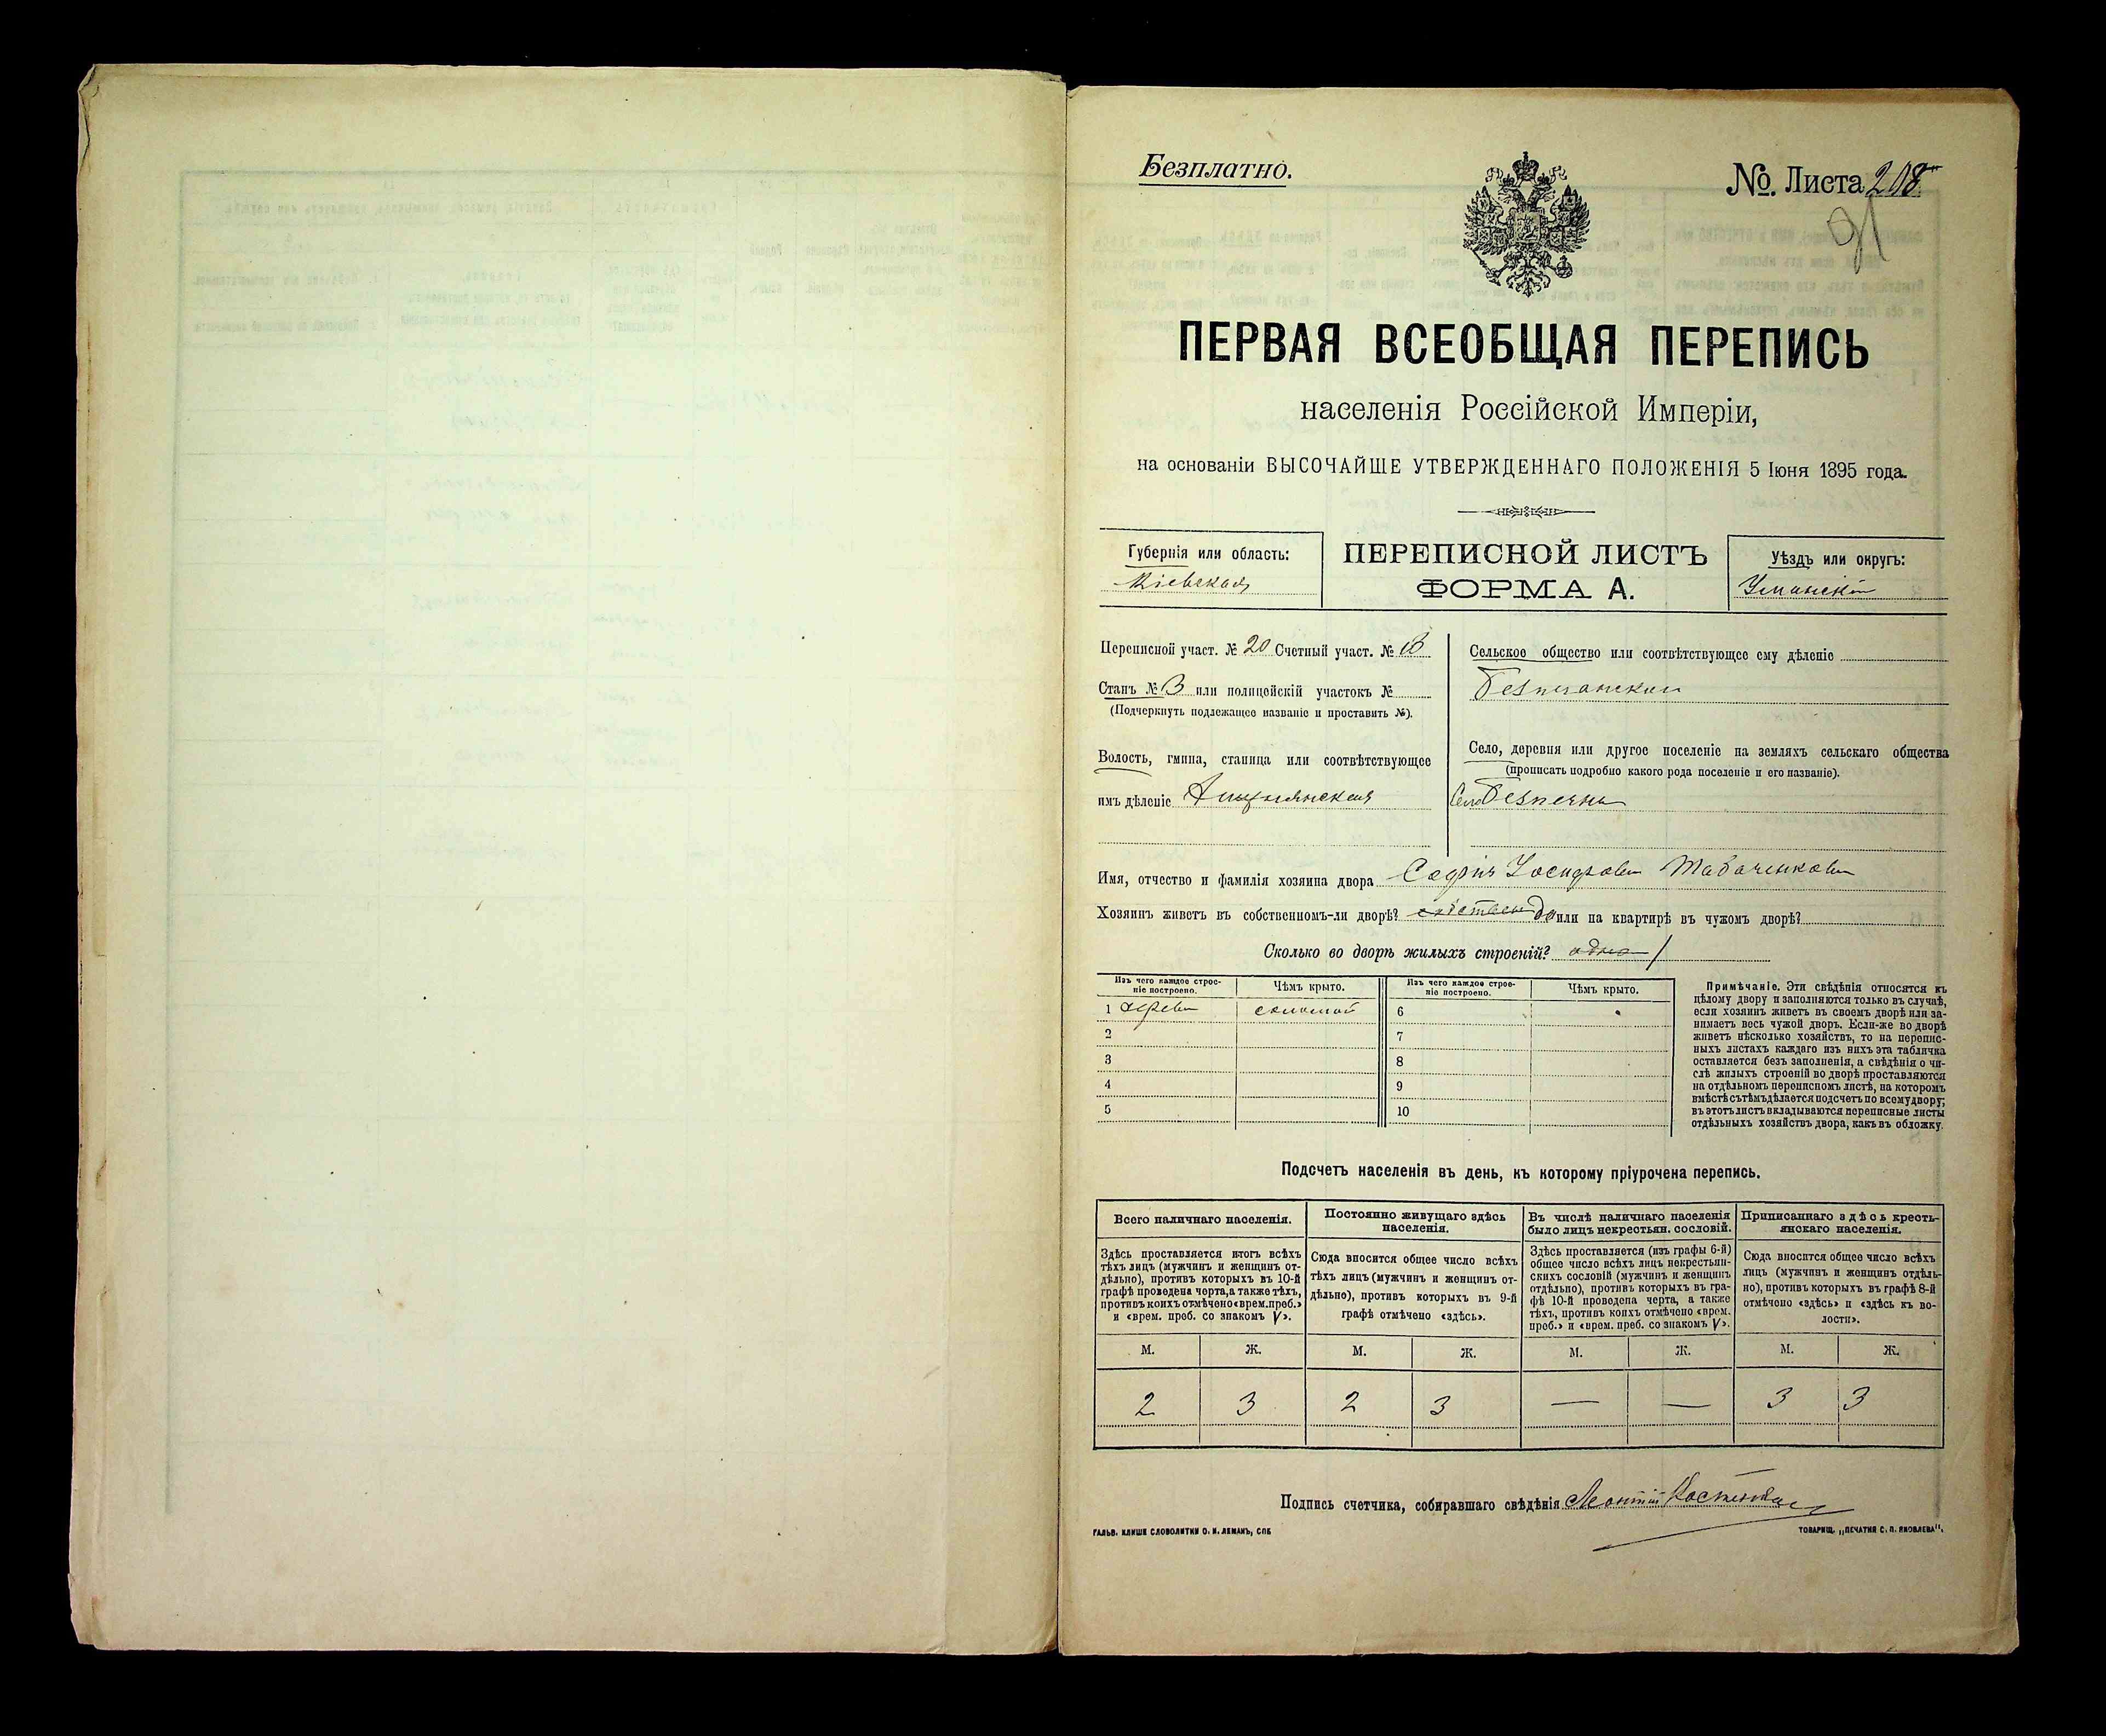 Безплатно.
№. Листа 208
91
ПЕРВАЯ ВСЕОБЩАЯ ПЕРЕПИСЬ
населенія Россійской Имперіи,
на основаніи ВЫСОЧАЙШЕ УТВЕРЖДЕННАГО ПОЛОЖЕНІЯ 5 Іюня 1895 года.
Губернія или область:
Кіевская
ПЕРЕПИСНОЙ ЛИСТЪ
ФОРМА А.
Уѣздъ или округъ:
Уманскій
Переписной участ. № 20 Счетный участ. №
Станъ № 3 или полицейскій участокъ №
(Подчеркнуть подлежащее названіе и проставить №).
Волость, гмина, станица или соотвѣтствующее
имъ дѣленіе
Сельское общество или соотвѣтствующее ему дѣленіе
Село, деревня или другое поселеніе на земляхъ сельскаго общества
(прописать подробно какого рода поселеніе и его названіе).
Село
Имя, отчество и фамилія хозяина двора
Хозяинъ живетъ въ собственномъ-ли дворѣ? да или на квартирѣ въ чужомъ дворѣ?
Сколько во дворѣ жилыхъ строеній? одно 1
Изъ чего каждое строе-
ніе построено.
Чѣмъ крыто.
Изъ чего каждое строе-
ніе построено.
Чѣмъ крыто.
1 дерева соломой 6
2 7
3 8
4 9
5 10
Примѣчаніе. Эти свѣдѣнія относятся къ
цѣлому двору и заполняются только въ случаѣ,
если хозяинъ живетъ въ своемъ дворѣ или за-
нимаетъ весь чужой дворъ. Если-же во дворѣ
живетъ нѣсколько хозяйствъ, то на перепис-
ныхъ листахъ каждаго изъ нихъ эта табличка
оставляется безъ заполненія, а свѣдѣнія о чи-
слѣ жилыхъ строеній во дворѣ проставляются
на отдѣльномъ переписномъ листѣ, на которомъ
вмѣстѣ съ тѣмъ дѣлается подсчетъ по всему двору;
въ этотъ листъ вкладываются переписные листы
отдѣльныхъ хозяйствъ двора, какъ въ обложку.
Подсчетъ населенія въ день, къ которому пріурочена перепись.
Всего наличнаго населенія.
Здѣсь проставляется итогъ всѣхъ
тѣхъ лицъ (мужчинъ и женщинъ от-
дѣльно), противъ которыхъ въ 10-й
графѣ проведена черта, а также тѣхъ,
противъ коихъ отмѣчено «врем. преб.»
и «врем. преб. со знакомъ V».
Постоянно живущаго здѣсь
населенія.
Сюда вносится общее число всѣхъ
тѣхъ лицъ (мужчинъ и женщинъ от-
дѣльно), противъ которыхъ въ 9-й
графѣ отмѣчено «здѣсь».
Въ числѣ наличнаго населенія
было лицъ некрестьян. сословій.
Здѣсь проставляется (изъ графы 6-й)
общее число всѣхъ лицъ некрестьян-
скихъ сословій (мужчинъ и женщинъ
отдѣльно), противъ которыхъ въ гра-
фѣ 10-й проведена черта, а также
тѣхъ, противъ коихъ отмѣчено «врем.
преб.» и «врем. преб. со знакомъ V».
Приписаннаго здѣсь кресть-
янскаго населенія.
Сюда вносится общее число всѣхъ
лицъ (мужчинъ и женщинъ отдѣль-
но), противъ которыхъ въ графѣ 8-й
отмѣчено «здѣсь» и «здѣсь къ во-
лости».
М. Ж. М. Ж. М. Ж. М. Ж.
2 3 2 3 — — 3 3
Подпись счетчика, собиравшаго свѣдѣнія Леонтій
ГАЛЬВ. КЛИШЕ СЛОВОЛИТНИ О. И. ЛЕМАНЪ, СПБ
ТОВАРИЩ. „ПЕЧАТНЯ С. П. ЯКОВЛЕВА".